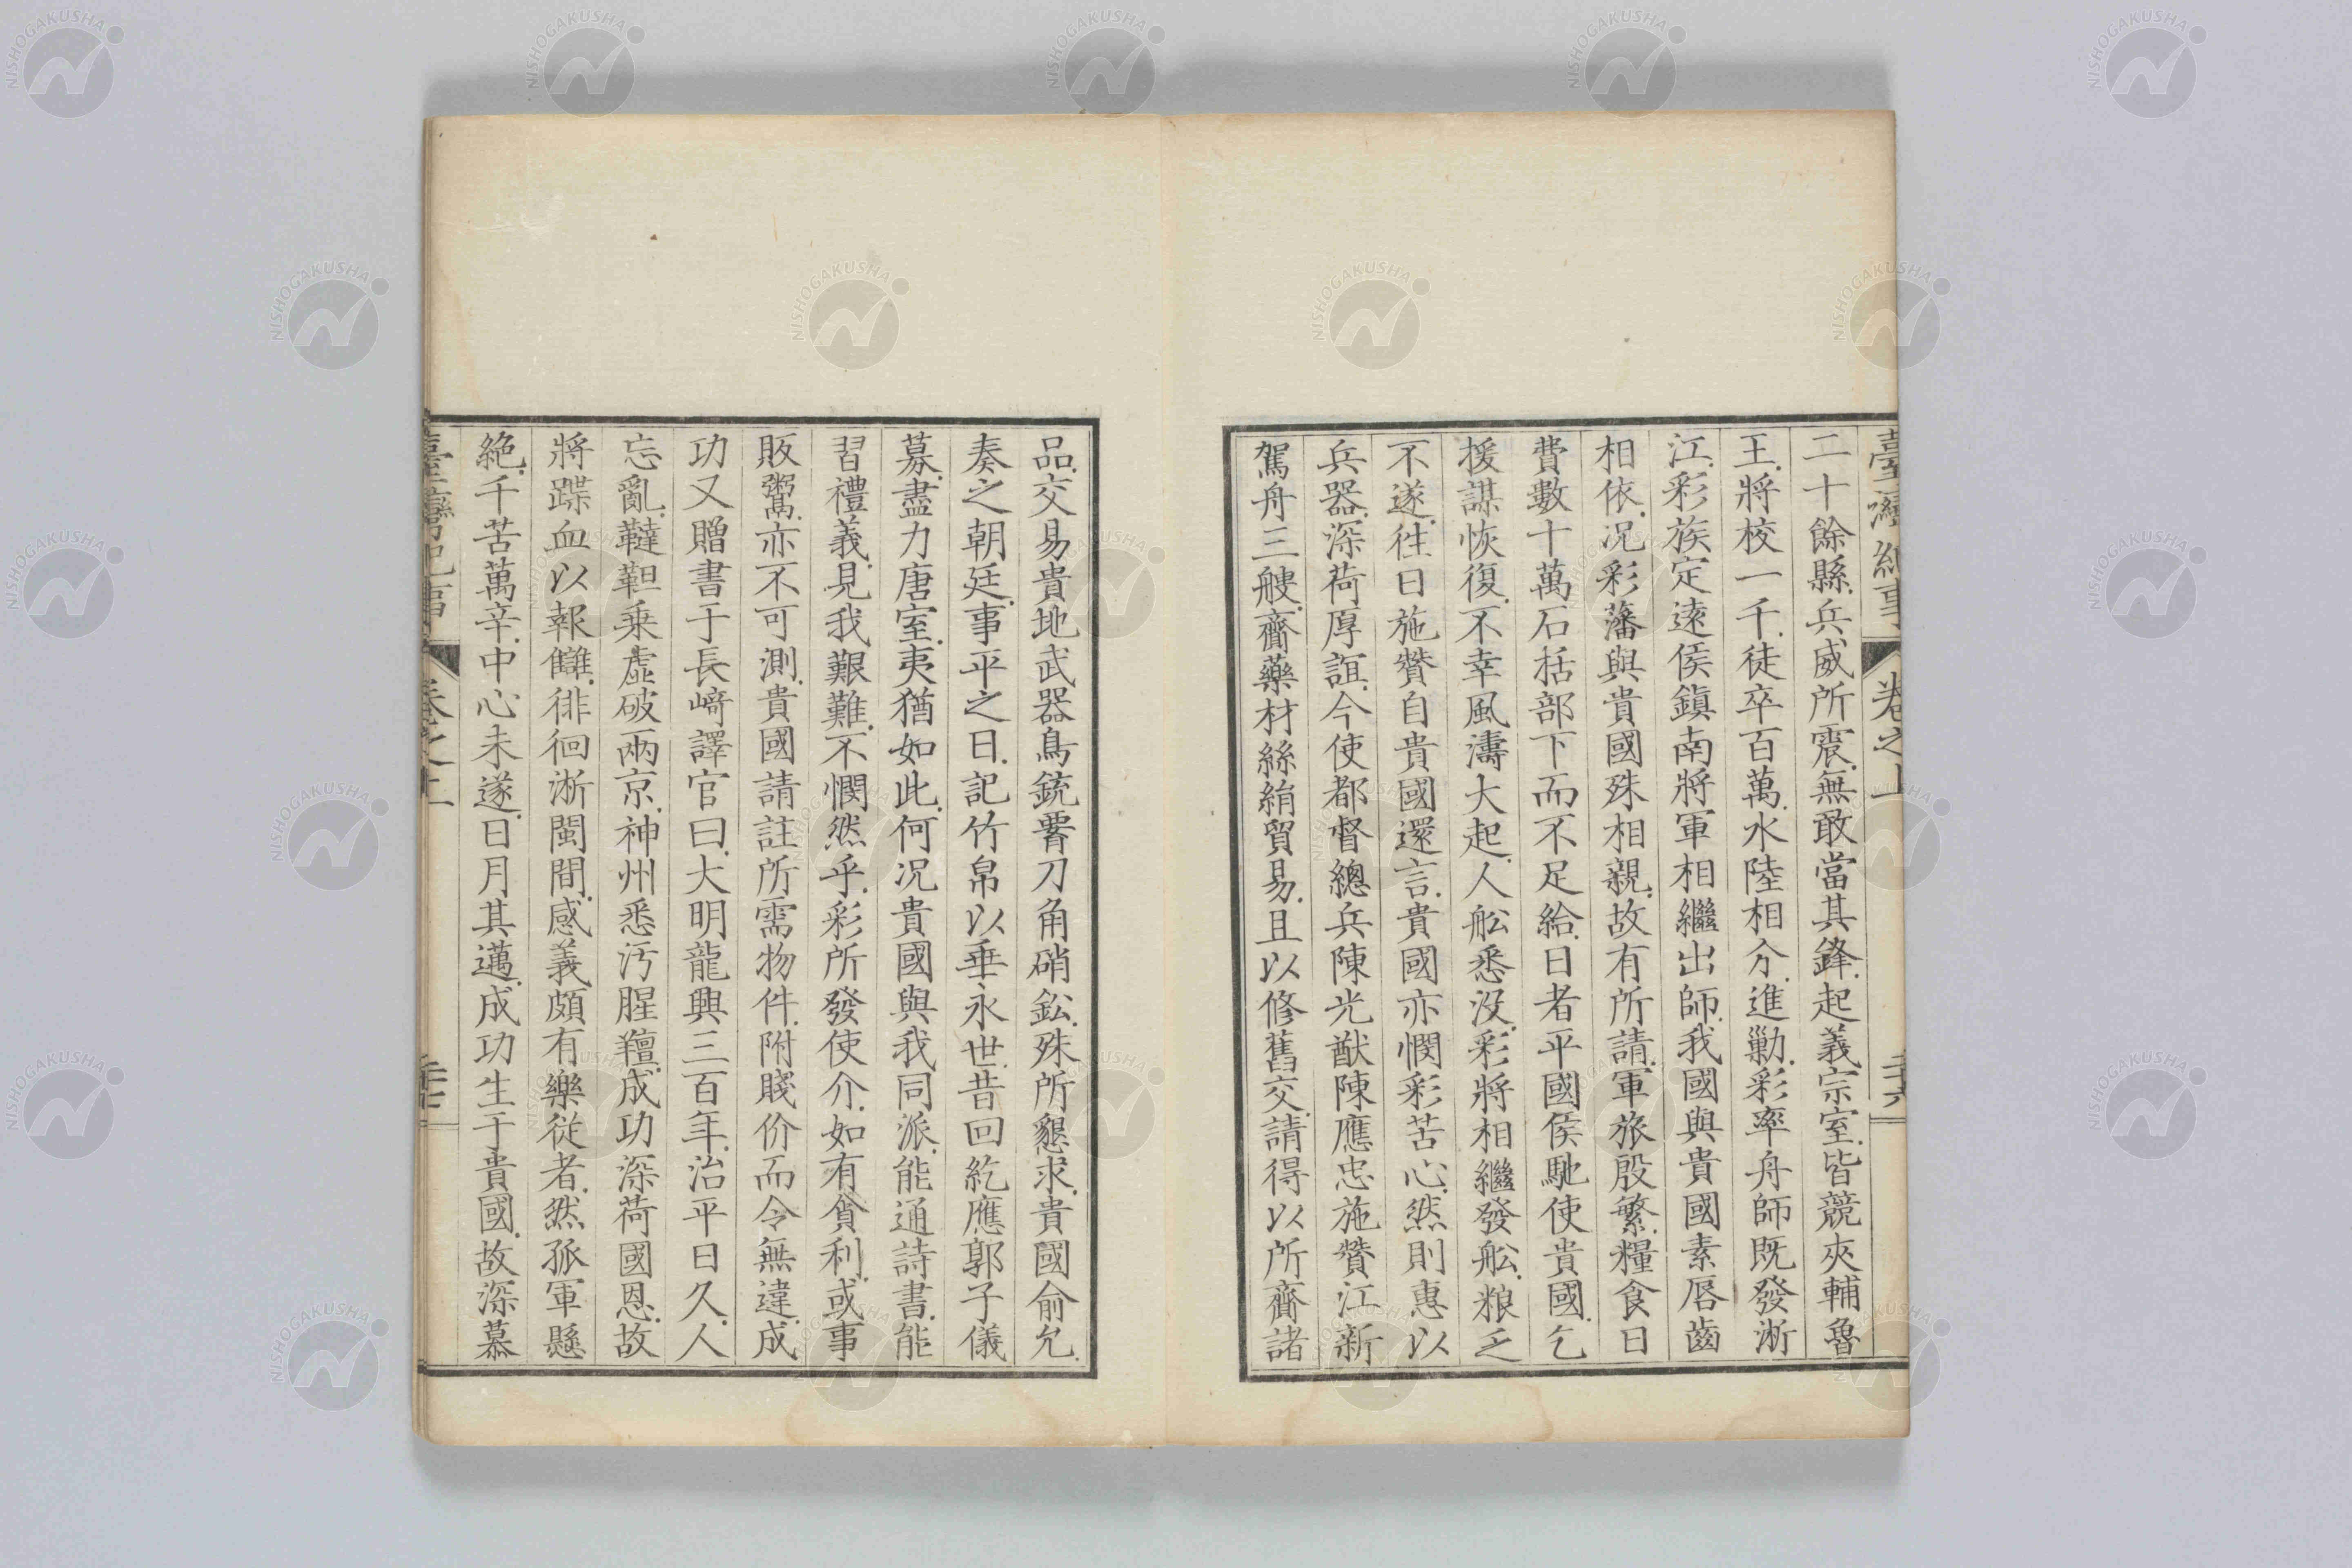 臺灣紀事 卷之上 二十六
二十餘縣兵威所震無敢當其鋒起義宗室皆競夾輔魯
王將校一千徒卒百萬水陸相分進勦彩率舟師既發浙
江彩族定遠侯鎮南將軍相繼出師我國與貴國素唇齒
相依况彩藩與貴國殊相親故有所請軍旅殷繁糧食日
費數十萬石括部下而不足給日者平國侯馳使貴國乞
援謀恢復不幸風濤大起人舩悉没彩將相繼發舩粮乏
不遂往日施贊自貴國還言貴國亦憫彩苦心然則惠以
兵器深荷厚誼今使都督總兵陳光猷陳應忠施贊江新
駕舟三艘齎藥材絲絹貿易且以修舊交請得以所齎諸
品交易貴地武器鳥銃畧刀角硝鈆殊所懇求貴國俞允
奏之朝廷事平之日記竹帛以垂永世昔回紇應郭子儀
募盡力唐室夷猶如此何况貴國與我同派能通詩書能
習禮義見我艱難不憫然乎彩所發使介如有貪利或事
販鬻亦不可測貴國請註所需物件附賤价而令無違成
功又贈書于長﨑譯官曰大明龍興三百年治平日久人
忘亂韃靼乗虚破兩京神州悉汚腥羶成功深荷國恩故
將蹀血以報讎徘徊浙閩間感義頗有樂從者然孤軍懸
絶千苦萬辛中心未遂日月其邁成功生于貴國故深慕
臺灣紀事 卷之上
NISHOGAKUSHA